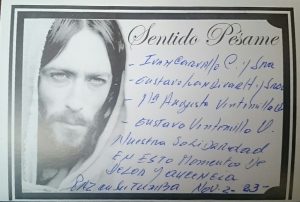 Sentido Pésame
- Ivan Carrillo C. y Sra
- Gustavo Landivar H y Sra
- Ma Augusta Vintimilla U
- Gustavo Vintimilla U.
Nuestra Solidaridad
En esto momentos de
Dolor y ausencia
Paz en su tumba Nov-2-23-